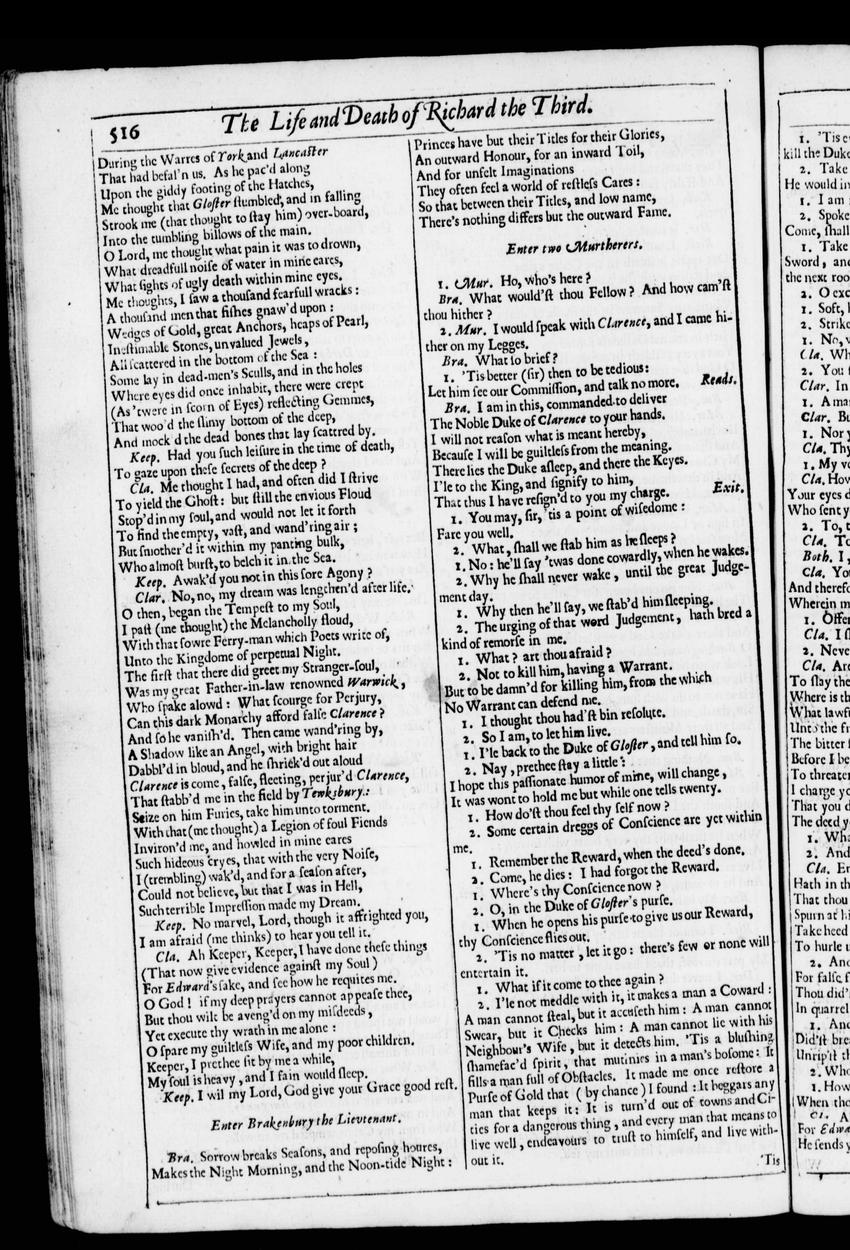 516
The Life and Death of Richard the Third.
During the Warres of York and Lancaster
That had befal'n us. As he pac'd along
Upon the giddy footing of the Hatches,
Me thought that Gloſter ſtumbled, and in falling
Strook me (that thought to ſtay him) over-board,
Into the tumbling billows of the main.
O Lord, me thought what pain it was to drown,
What dreadfull noiſe of water in mine eares,
What ſights of ugly death within mine eyes.
Me thoughts, I ſaw a thouſand fearfull wracks:
A thouſand men that fiſhes gnaw'd upon:
Wedges of Gold, great Anchors, heaps of Pearl,
Ineſtimable Stones, unvalued Jewels,
All ſcattered in the bottom of the Sea:
Some lay in dead-men's Sculls, and in the holes
Where eyes did once inhabit, there were crept
(As 'twere in ſcorn of Eyes) reflecting Gemmes,
That woo'd the ſlimy bottom of the deep,
And mock'd the dead bones that lay ſcattred by.
Keep. Had you ſuch leiſure in the time of death,
To gaze upon theſe ſecrets of the deep?
Cla. Me thought I had, and often did I ſtrive
To yield the Ghoſt: but ſtill the envious Floud
Stop'd in my ſoul, and would not let it forth
To find the empty, vaſt, and wand'ring air;
But ſmother'd it within my panting bulk,
Who almoſt burſt, to belch it in the Sea.
Keep. Awak'd you not in this ſore Agony?
Clar. No, no, my dream was lengthen'd after life.
O then, began the Tempeſt to my Soul,
I paſt (me thought) the Melancholly floud,
With that ſowre Ferry-man which Poets write of,
Unto the Kingdome of perpetual Night.
The firſt that there did greet my Stranger-ſoul,
Was my great Father-in-law renowned Warwick,
Who ſpake alowd: What ſcourge for Perjury,
Can this dark Monarchy afford falſe Clarence?
And ſo he vaniſh'd. Then came wand'ring by,
A Shadow like an Angel, with bright hair
Dabbl'd in bloud, and he ſhriek'd out aloud
Clarence is come, falſe, fleeting, perjur'd Clarence,
That ſtabb'd me in the field by Tewksbury:
Seize on him Furies, take him unto torment.
With that (me thought) a Legion of foul Fiends
Inviron'd me, and howled in mine eares
Such hideous cryes, that with the very Noiſe,
I (trembling) wak'd, and for a ſeaſon after,
Could not believe, but that I was in Hell,
Such terrible Impreſſion made my Dream.
Keep. No marvel, Lord, though it affrighted you,
I am afraid (me thinks) to hear you tell it.
Cla. Ah Keeper, Keeper, I have done theſe things
(That now give evidence againſt my Soul)
For Edward's ſake, and ſee how he requites me.
O God! if my deep prayers cannot appeaſe thee,
But thou wilt be aveng'd on my miſdeeds,
Yet execute thy wrath in me alone:
O ſpare my guiltleſs Wife, and my poor children.
Keeper, I prethee ſit by me a while,
My ſoul is heavy, and I fain would ſleep.
Keep. I wil my Lord, God give your Grace good reſt.
Enter Brakenbury the Lievtenant.
Bra. Sorrow breaks Seaſons, and repoſing houres,
Makes the Night Morning, and the Noon-tide Night:
Princes have but their Titles for their Glories,
An outward Honour, for an inward Toil,
And for unfelt Imaginations
They often feel a world of reſtleſs Cares:
So that between their Titles, and low name,
There's nothing differs but the outward Fame.
Enter two Murtherers.
1. Mur. Ho, who's here?
Bra. What would'ſt thou Fellow? And how cam'ſt
thou hither?
2. Mur. I would ſpeak with Clarence, and I came hi-
ther on my Legges.
Bra. What ſo brief?
1. 'Tis better (ſir) then to be tedious:
Let him ſee our Commiſſion, and talk no more. Reads.
Bra. I am in this, commanded to deliver
The Noble Duke of Clarence to your hands.
I will not reaſon what is meant hereby,
Becauſe I will be guiltleſs from the meaning.
There lies the Duke aſleep, and there the Keyes.
I'le to the King, and ſignify to him,
That thus I have reſign'd to you my charge. Exit.
1. You may, ſir, 'tis a point of wiſedome:
Fare you well.
2. What, ſhall we ſtab him as he ſleeps?
1. No: he'll ſay 'twas done cowardly, when he wakes.
2. Why he ſhall never wake, until the great Judge-
ment day.
1. Why then he'll ſay, we ſtab'd him ſleeping.
2. The urging of that word Judgement, hath bred a
kind of remorſe in me.
1. What? art thou afraid?
2. Not to kill him, having a Warrant.
But to be damn'd for killing him, from the which
No Warrant can defend me.
1. I thought thou had'ſt bin reſolute.
2. So I am, to let him live.
1. I'le back to the Duke of Gloſter, and tell him ſo.
2. Nay, prethee ſtay a little:
I hope this paſſionate humor of mine, will change,
It was wont to hold me but while one tells twenty.
1. How do'ſt thou feel thy ſelf now?
2. Some certain dreggs of Conſcience are yet within
me.
1. Remember the Reward, when the deed's done.
2. Come, he dies: I had forgot the Reward.
1. Where's thy Conſcience now?
2. O, in the Duke of Gloſter's purſe.
1. When he opens his purſe to give us our Reward,
thy Conſcience flies out.
2. 'Tis no matter, let it go: there's few or none will
entertain it.
1. What if it come to thee again?
2. I'le not meddle with it, it makes a man a Coward:
A man cannot ſteal, but it accuſeth him: A man cannot
Swear, but it Checks him: A man cannot lie with his
Neighbour's Wife, but it detects him. 'Tis a bluſhing
ſhamefac'd ſpirit, that mutinies in a man's boſome: It
fills a man full of Obſtacles. It made me once reſtore a
Purſe of Gold that (by chance) I found: It beggars any
man that keeps it: It is turn'd out of towns and Ci-
ties for a dangerous thing, and every man that means to
live well, endeavours to truſt to himſelf, and live with-
out it.
'Tis
1. 'Tis
kill the Duke
2. Take
He would in
1. I am
2. Spoke
Come, ſhall
1. Take
Sword, and
the next roo
2. O exc
1. Soft,
2. Strike
1. No,
Cla. Wh
2. You
Clar. In
1. A ma
Clar. Bu
1. Nor
Cla. Thy
1. My vo
Cla. How
Your eyes d
Who ſent y
2. To, t
Cla. To
Both. I,
Cla. You
And therefo
Wherein m
1. Offen
Cla. I ſ
2. Neve
Cla. Are
To ſlay the
Where is th
What lawf
Unto the fr
The bitter
Before I be
To threaten
I charge yo
That you d
The deed y
1. Wha
2. And
Cla. Er
Hath in th
That thou
Spurn at hi
Take heed
To hurle u
2. And
For falſe f
Thou did'
In quarrel
1. And
Did'ſt bre
Unrip'ſt th
2. Who
1. How
When tho
Cl. A
For Edwa
He ſends y